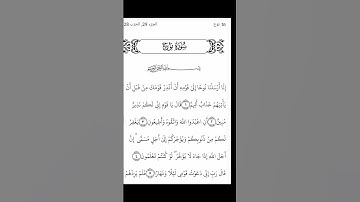 16 نوح الجزء 29, الحزب 58
سُورَةُ نُوحٍ
بِسْمِ اللَّهِ الرَّحْمَٰنِ الرَّحِيمِ
إِنَّا أَرْسَلْنَا نُوحًا إِلَىٰ قَوْمِهِ أَنْ أَنْذِرْ قَوْمَكَ مِنْ قَبْلِ أَنْ
يَأْتِيَهُمْ عَذَابٌ أَلِيمٌ ١ قَالَ يَا قَوْمِ إِنِّي لَكُمْ نَذِيرٌ
مُبِينٌ ٢ أَنِ اعْبُدُوا اللَّهَ وَاتَّقُوهُ وَأَطِيعُونِ ٣ يَغْفِرْ
لَكُمْ مِنْ ذُنُوبِكُمْ وَيُؤَخِّرْكُمْ إِلَىٰ أَجَلٍ مُسَمًّى ۚ إِنَّ
أَجَلَ اللَّهِ إِذَا جَاءَ لَا يُؤَخَّرُ ۖ لَوْ كُنْتُمْ تَعْلَمُونَ ٤
قَالَ رَبِّ إِنِّي دَعَوْتُ قَوْمِي لَيْلًا وَنَهَارًا ٥ فَلَمْ يَزِدْهُمْ